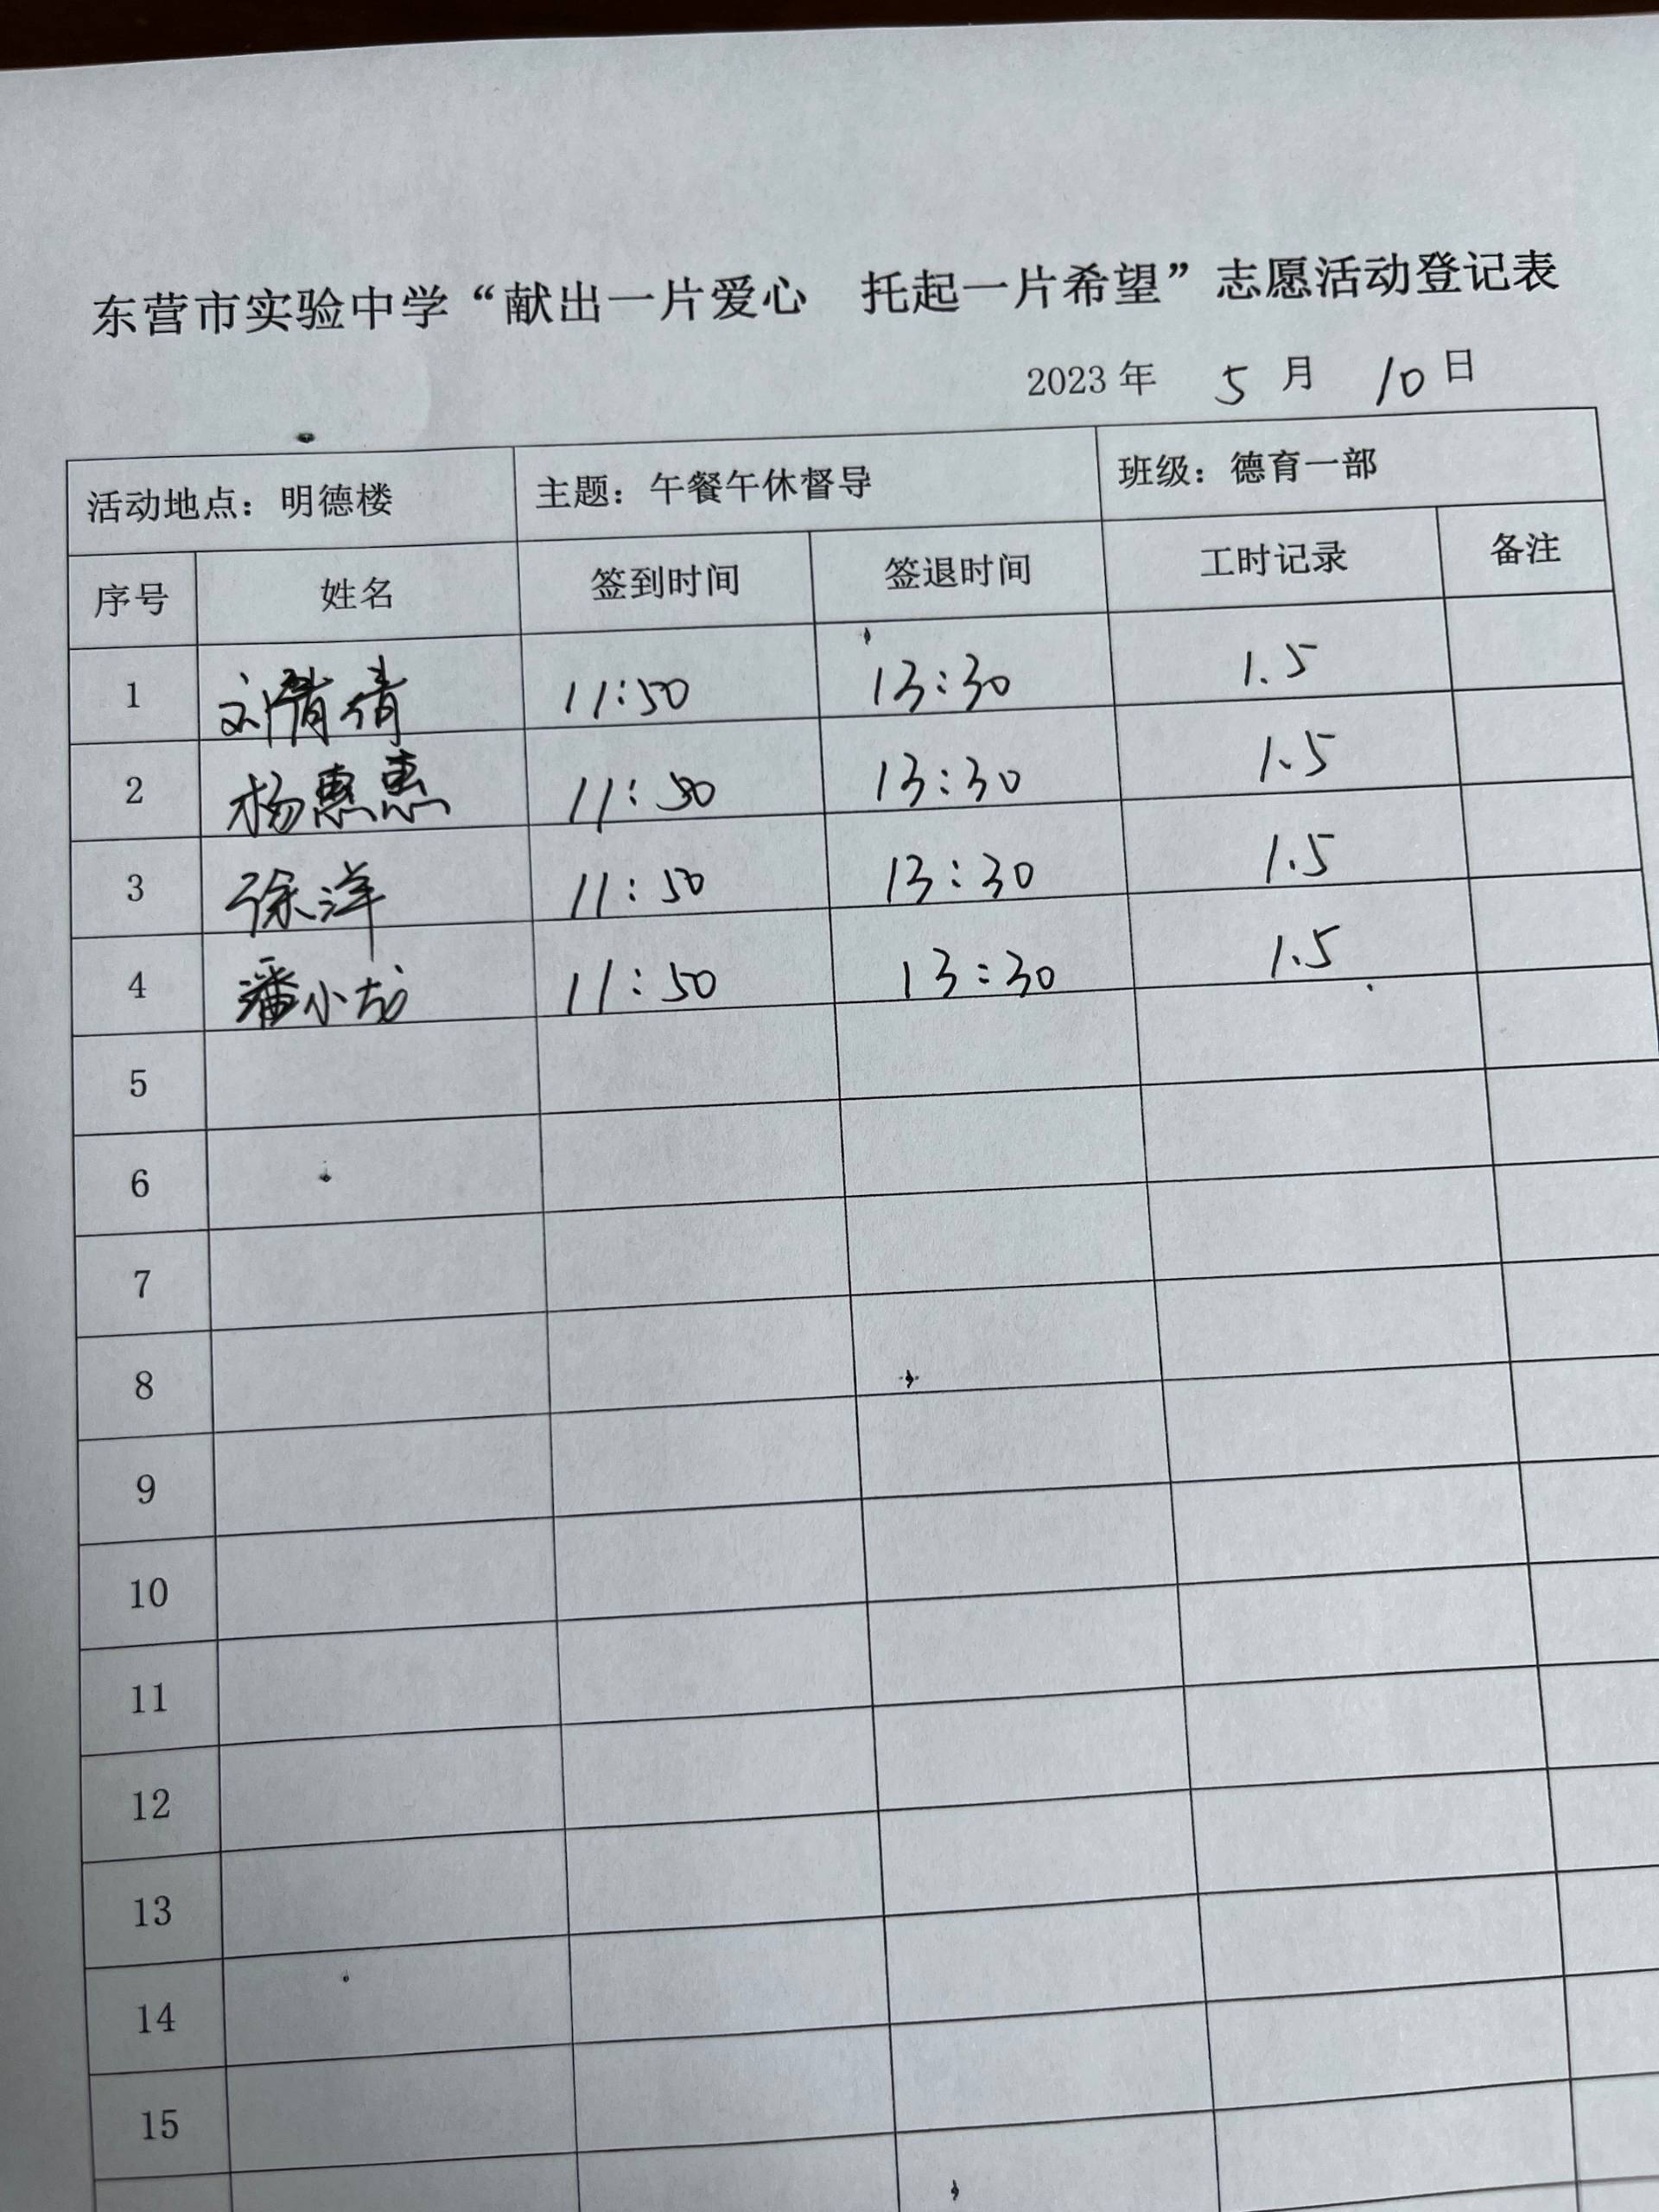 东营市实验中学“献出一片爱心 托起一片希望”志愿活动登记表
2023 年 5 月 10 日
活动地点：明德楼 主题：午餐午休督导 班级：德育一部
序号 姓名 签到时间 签退时间 工时记录 备注
1 刘倩倩 11:50 13:30 1.5
2 杨惠惠 11:50 13:30 1.5
3 徐洋 11:50 13:30 1.5
4 潘小龙 11:50 13:30 1.5
5
6
7
8
9
10
11
12
13
14
15